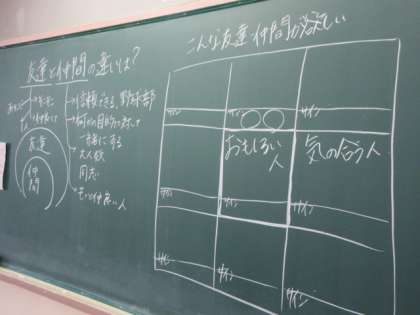 友達と仲間の違いは?
信頼できる、野球部
何かの目的に対して
一緒にする
大人数
同志
もっと仲良い人
友達
仲間
こんな友達・仲間が欲しい
サイン
サイン
サイン
おもしろい
人
気の合う人
サイン
サイン
サイン
サイン
サイン
サイン